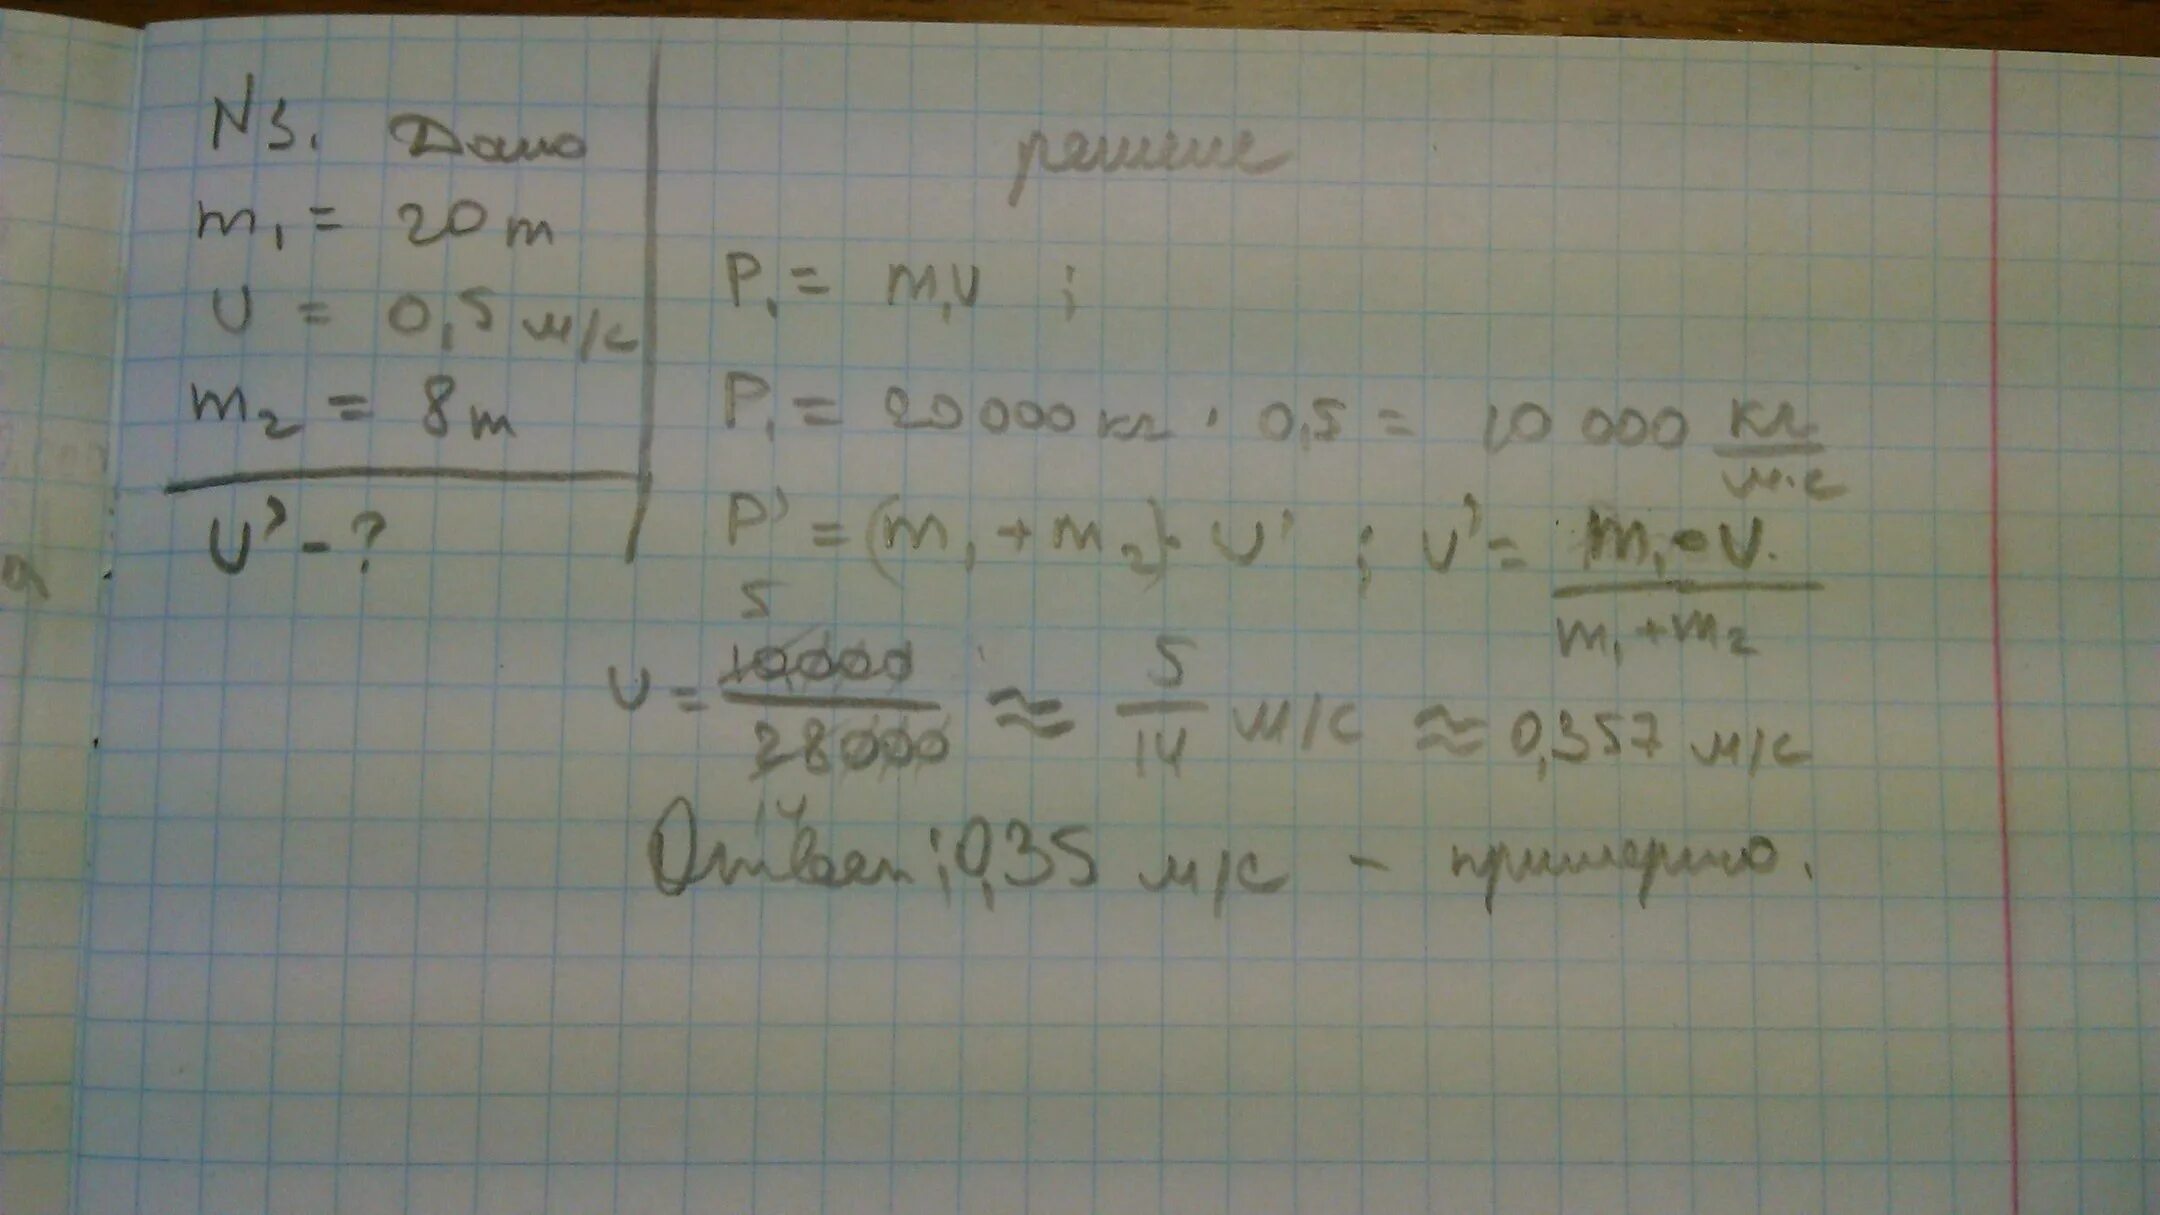 N3. Дано
m₁ = 20 т
υ = 0,5 м/с
m₂ = 8 т
υ' - ?
решение
P₁ = m₁υ ;
P₁ = 20 000 кг · 0,5 = 10 000 кг/м·с
P' = (m₁ + m₂) · υ' ; υ' = m₁ · υ. / m₁ + m₂
5
υ = 10000 / 28000 ≈ 5/14 м/с ≈ 0,357 м/с
14
Ответ: 0,35 м/с - примерно.